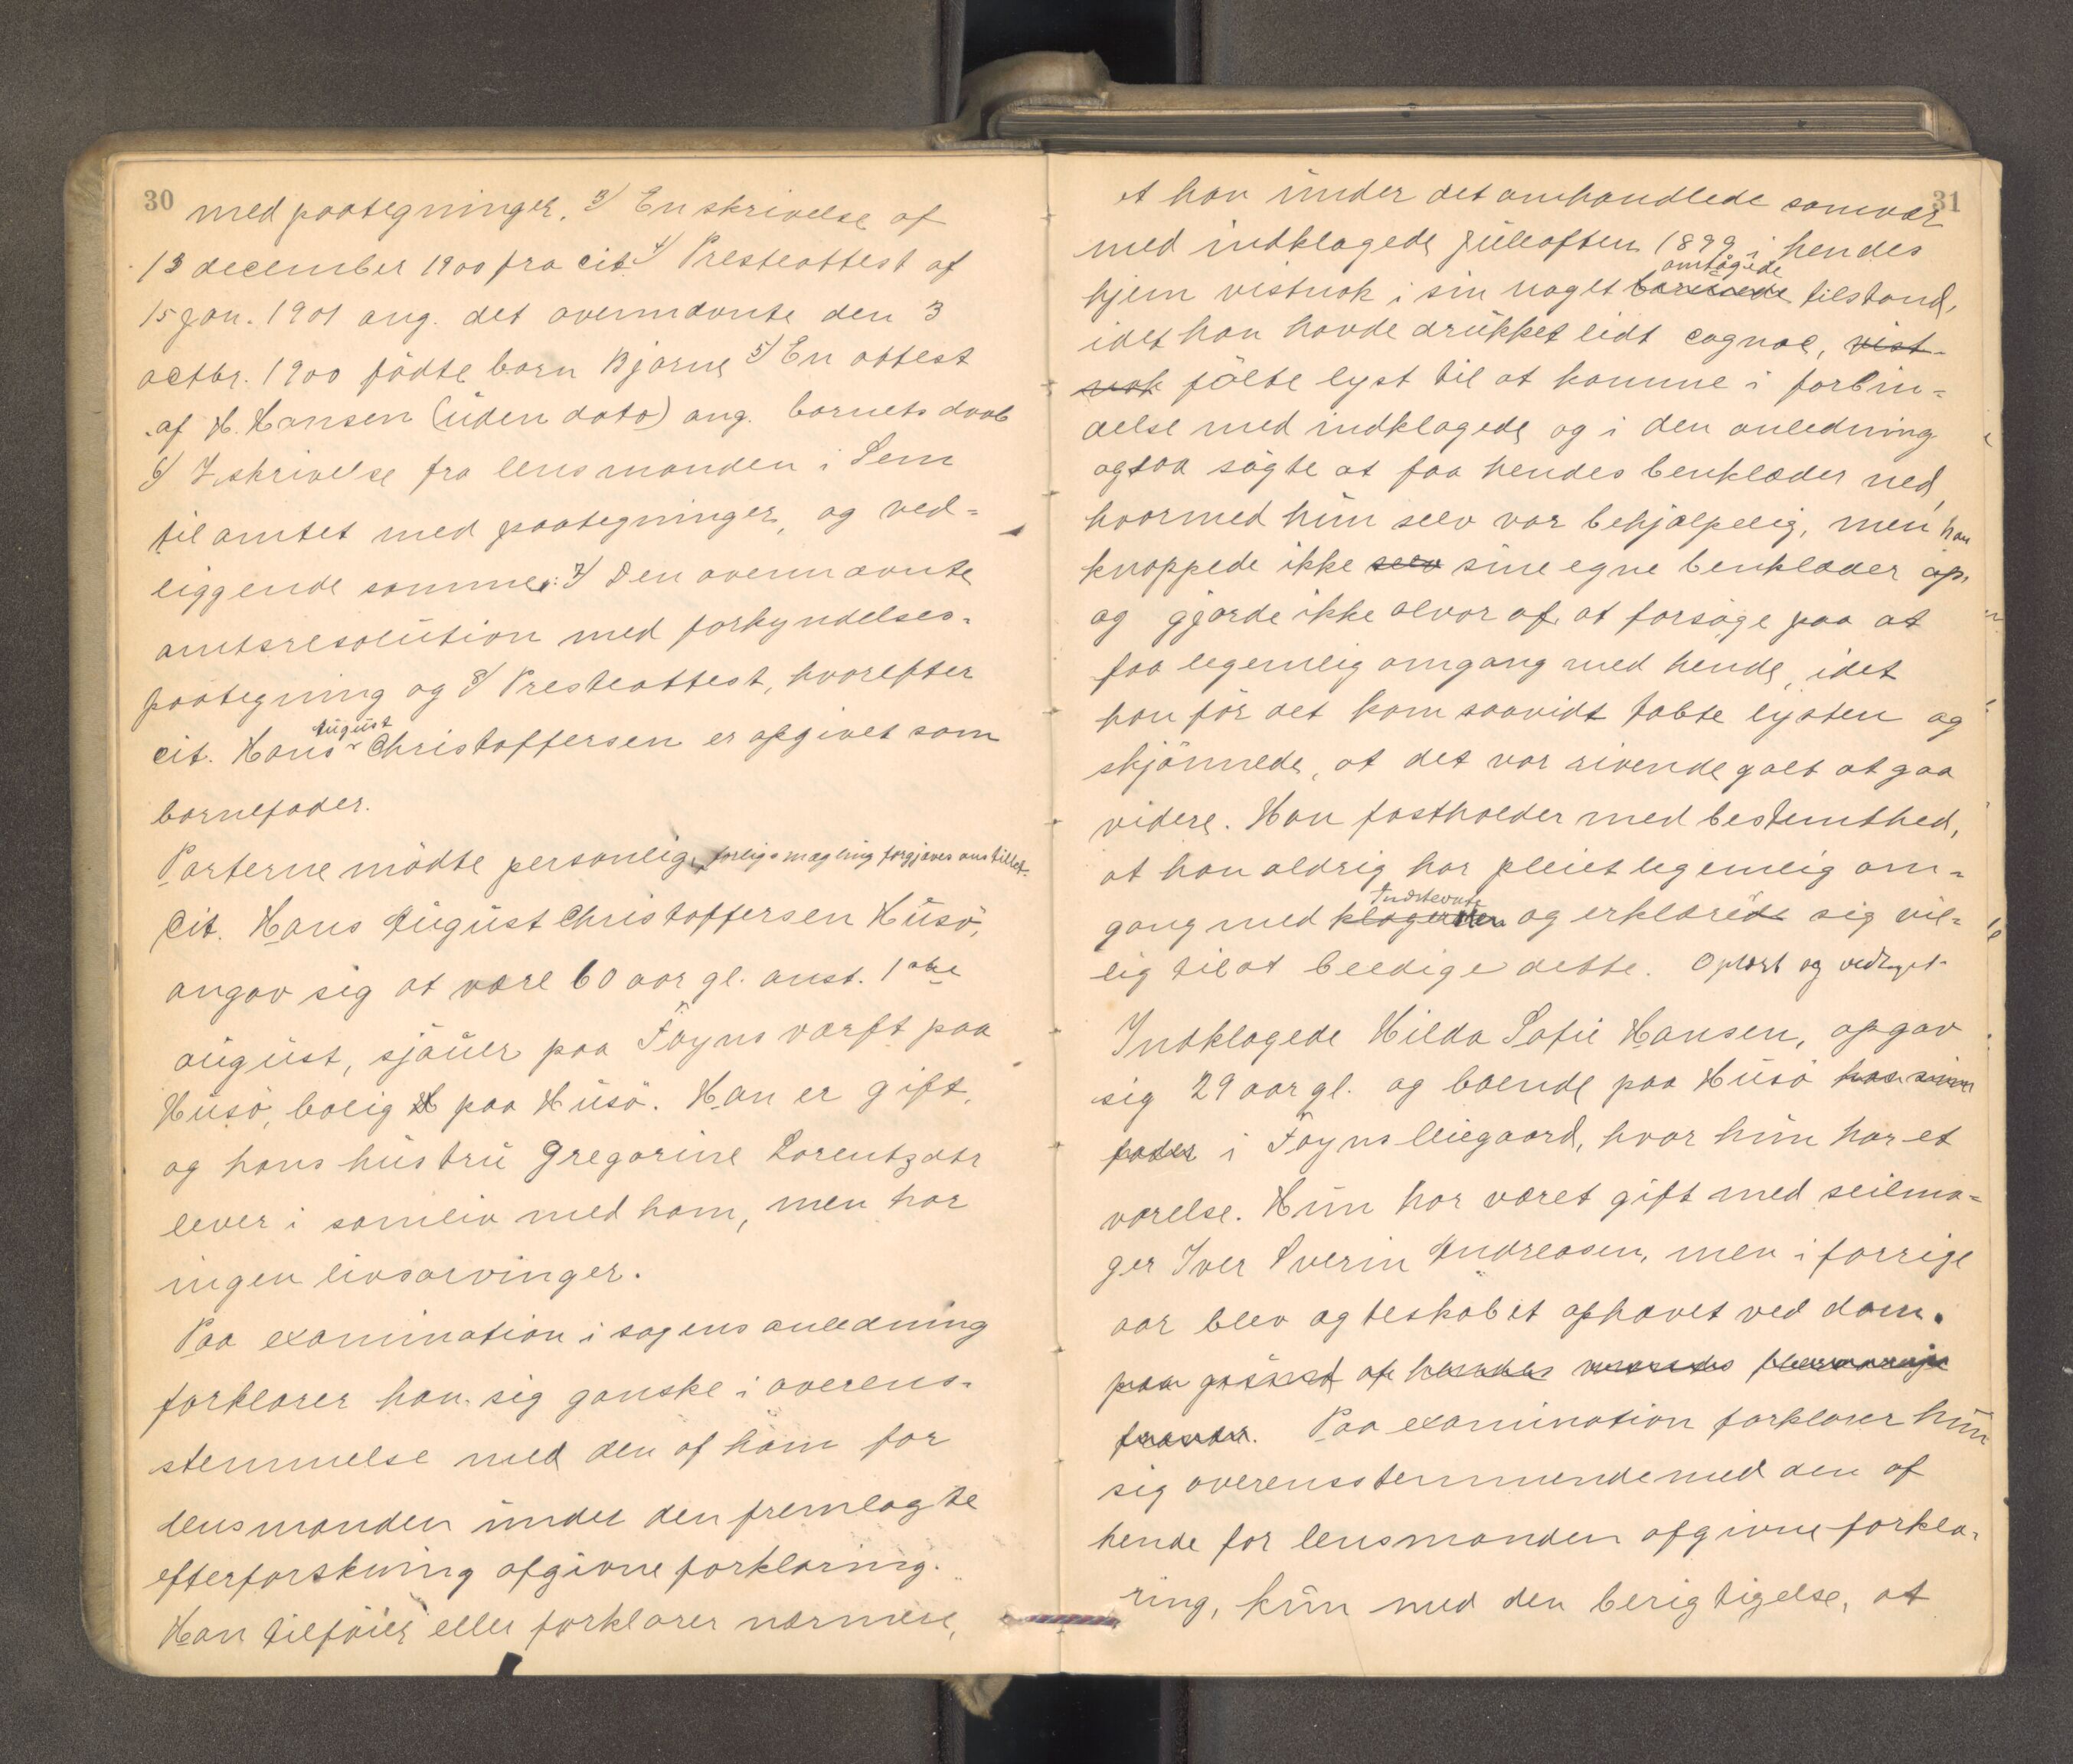 30
med paategninger. 3) En skrivelse af
13 december 1900 fra cit. 4) Presteattest af
15 jan. 1901 ang. det ovennævnte den 3
octbr. 1900 födte barn Bjarne 5) En attest
af H. Hansen (uden dato) ang. barnets daab
6) 7 skrivelse fra lensmanden i Sem
til amtet med paategninger, og ved-
liggende samme: 7) Den ovennævnte
amtsresolution med forkyndelses-
paategning og 8) Presteattest, hvorefter
August
cit. Hans Christoffersen er opgivet som
barnefader.
Parterne mödte personlig, forligsmægling forgjæves anstillet.
Cit. Hans August Christoffersen Husö,
angav sig at være 60 aar gl. anst. 1ste
august, sjauer paa Föyns værft paa
Husö, bolig paa Husö. Han er gift,
og hans hustru Gregorine Lorentzdtr
lever i samliv med ham, men har
ingen livsarvinger.
Paa examination i sagens anledning
forklarer han sig ganske i overens-
stemmelse med den af ham for
lensmanden under den fremlagte
efterforskning afgivne forklaring.
Han tilföier eller forklarer nærmere,
31
at han under det omhandlede samvær
med indklagede juleaften 1899 i hendes
omtågede
hjem vistnok i sin noget berusede tilstand,
idet han havde drukket lidt cognac, vist-
nok fölte lyst til at komme i forbin-
delse med indklagede og i den anledning
ogsaa sögte at faa hendes benklæder ned,
hvormed hun selv var behjælpelig, men han
knappede ikke selv sine egne benklæder op,
og gjorde ikke alvor af at forsöge paa at
faa legemlig omgang med hende, idet
han för det kom saavidt tabte lysten og
skjönnede, at det var rivende galt at gaa
videre. Han fastholder med bestemthed,
at han aldrig har pleiet legemlig om-
Indstevnte
gang med klagersken og erklærede sig vil-
lig til at beedige dette. Oplæst og vedtaget.
Indklagede Hilda Sofie Hansen, opgav
sig 29 aar gl. og boende paa Husö hos sin
fader i Föyns leiegaard, hvor hun har et
værelse. Hun har været gift med seilma-
ger Iver Sverin Andreasen, men i forrige
aar blev ægteskabet ophævet ved dom.
paa grund af hendes
Paa examination forklarer hun
sig overensstemmende med den af
hende for lensmanden afgivne forkla-
ring, kun med den berigtigelse, at